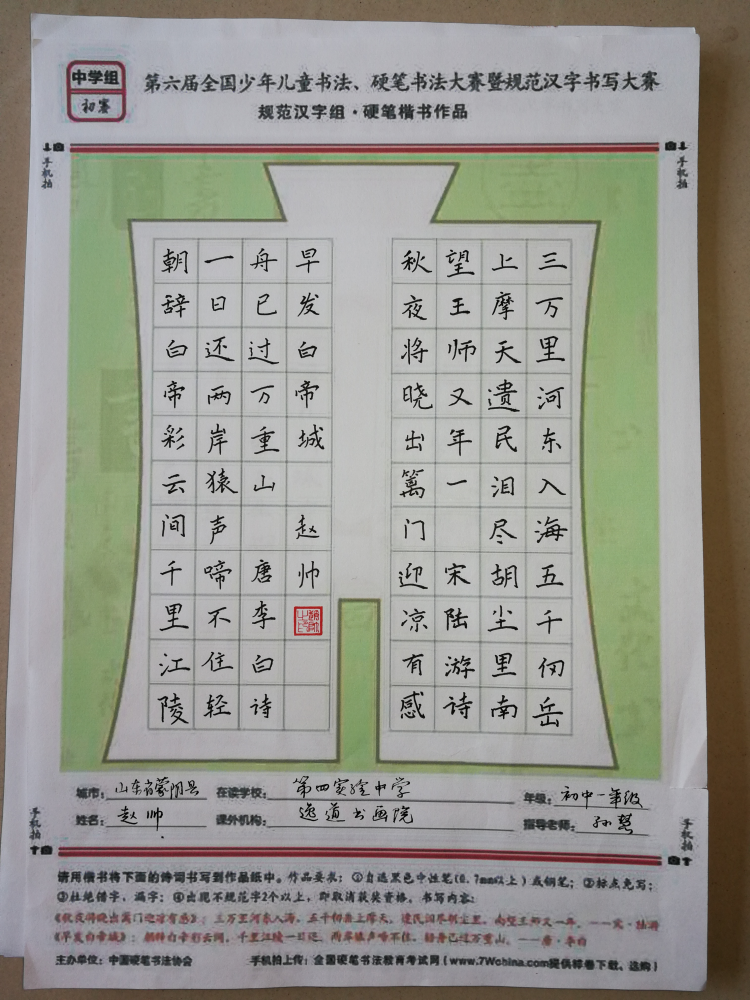 中学组
初赛
第六届全国少年儿童书法、硬笔书法大赛暨规范汉字书写大赛
规范汉字组·硬笔楷书作品
手机拍
手机拍
三万里河东入海五千仞岳
上摩天遗民泪尽胡尘里南
望王师又年一 宋陆游诗
秋夜将晓出篱门迎凉有感
朝辞白帝彩云间千里江陵
一日还两岸猿声啼不住轻
舟已过万重山 唐李白诗
早发白帝城 赵帅
城市：山东省蒙阴县 在读学校：第四实验中学 年级：初中一年级
姓名：赵帅 课外机构：逸道书画院 指导老师：孙慧
手机拍
手机拍
请用楷书将下面的诗词书写到作品纸中。作品要求：①自选黑色中性笔(0.7mm以上)或钢笔；②标点免写；
③杜绝错字、漏字；④出现不规范字2个以上，即取消获奖资格。书写内容：
《秋夜将晓出篱门迎凉有感》：三万里河东入海，五千仞岳上摩天。遗民泪尽胡尘里，南望王师又一年。——宋·陆游
《早发白帝城》：朝辞白帝彩云间，千里江陵一日还。两岸猿声啼不住，轻舟已过万重山。——唐·李白
主办单位：中国硬笔书法协会 手机拍上传：全国硬笔书法教育考试网(www.7Wchina.com提供样卷下载、选购)